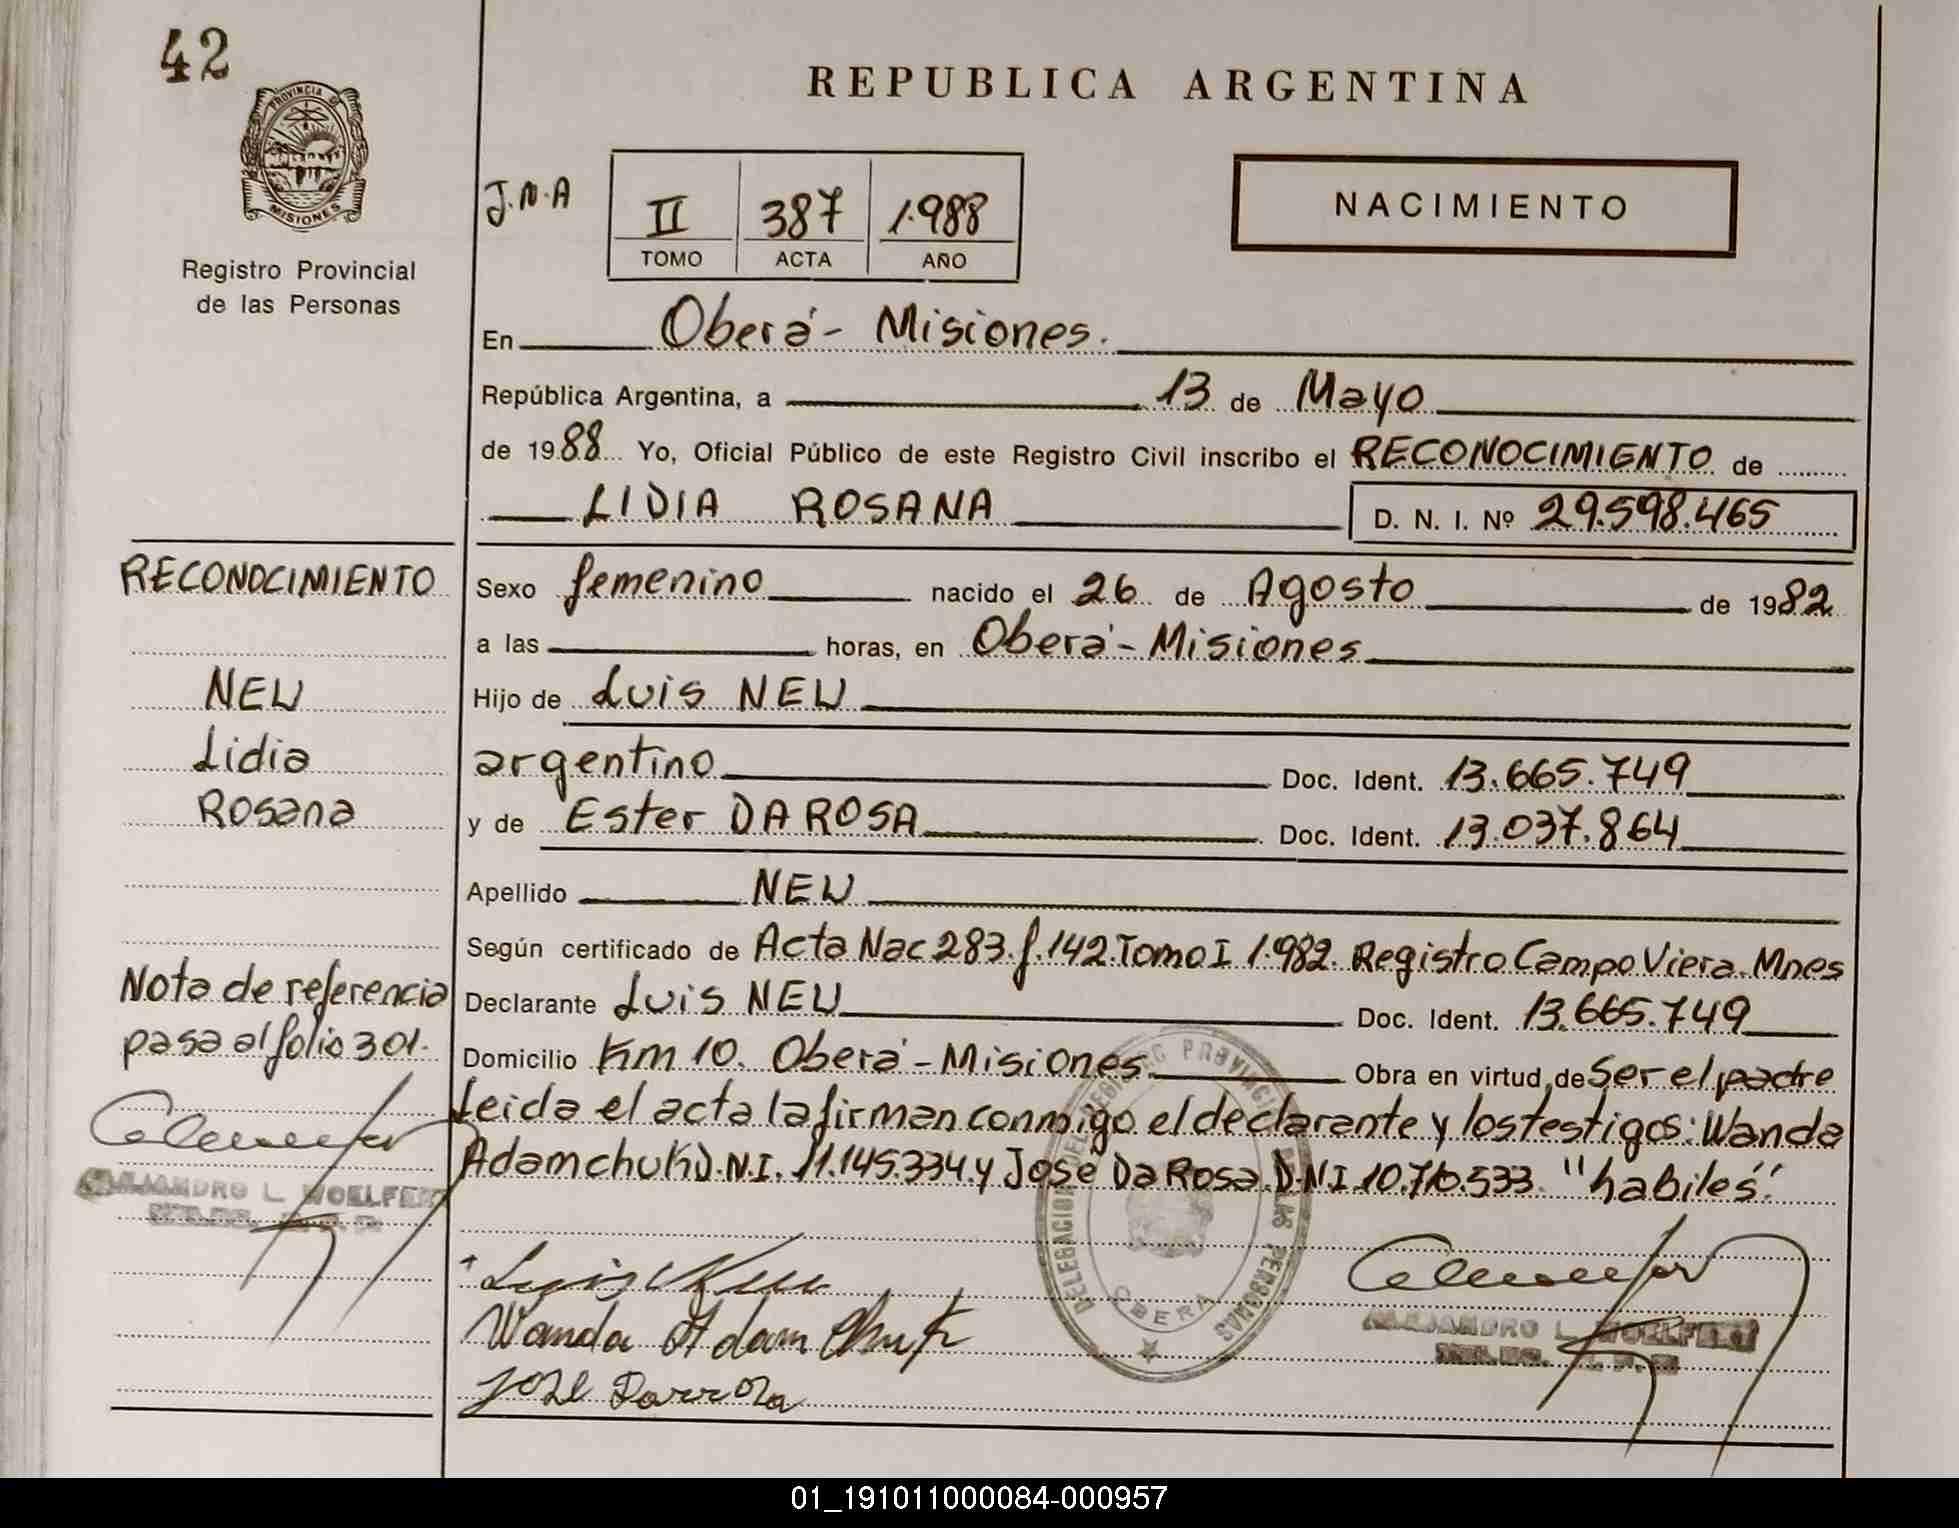 42
PROVINCIA DE
MISIONES
Registro Provincial
de las Personas
REPUBLICA ARGENTINA
J.N.A
II 387 1.988
TOMO ACTA AÑO
NACIMIENTO
En Oberá - Misiones.
República Argentina, a 13 de Mayo
de 1988 Yo, Oficial Público de este Registro Civil inscribo el RECONOCIMIENTO de
LIDIA ROSANA D. N. I. Nº 29.598.465
RECONOCIMIENTO
NEU
Lidia
Rosana
Nota de referencia
pasa al folio 301.
ALEJANDRO L. WOELFERT
Sexo femenino nacido el 26 de Agosto de 1982
a las horas, en Oberá - Misiones
Hijo de Luis NEU
argentino Doc. Ident. 13.665.749
y de Ester DA ROSA Doc. Ident. 13.037.864
Apellido NEU
Según certificado de Acta Nac 283. f. 142. Tomo I 1.982. Registro Campo Viera. Mnes
Declarante Luis NEU Doc. Ident. 13.665.749
Domicilio Km 10. Oberá - Misiones. Obra en virtud de Ser el padre
Leida el acta la firman conmigo el declarante y los testigos: Wanda
Adamchuk D.N.I. 11.145.334. y José Da Rosa. D.N.I 10.710.533. "habiles".
Luis Neu
Wanda Adamchuk
José Darroza
DELEGACION DEL REGISTRO PROVINCIAL DE LAS PERSONAS
OBERA
ALEJANDRO L. WOELFERT
01_191011000084-000957